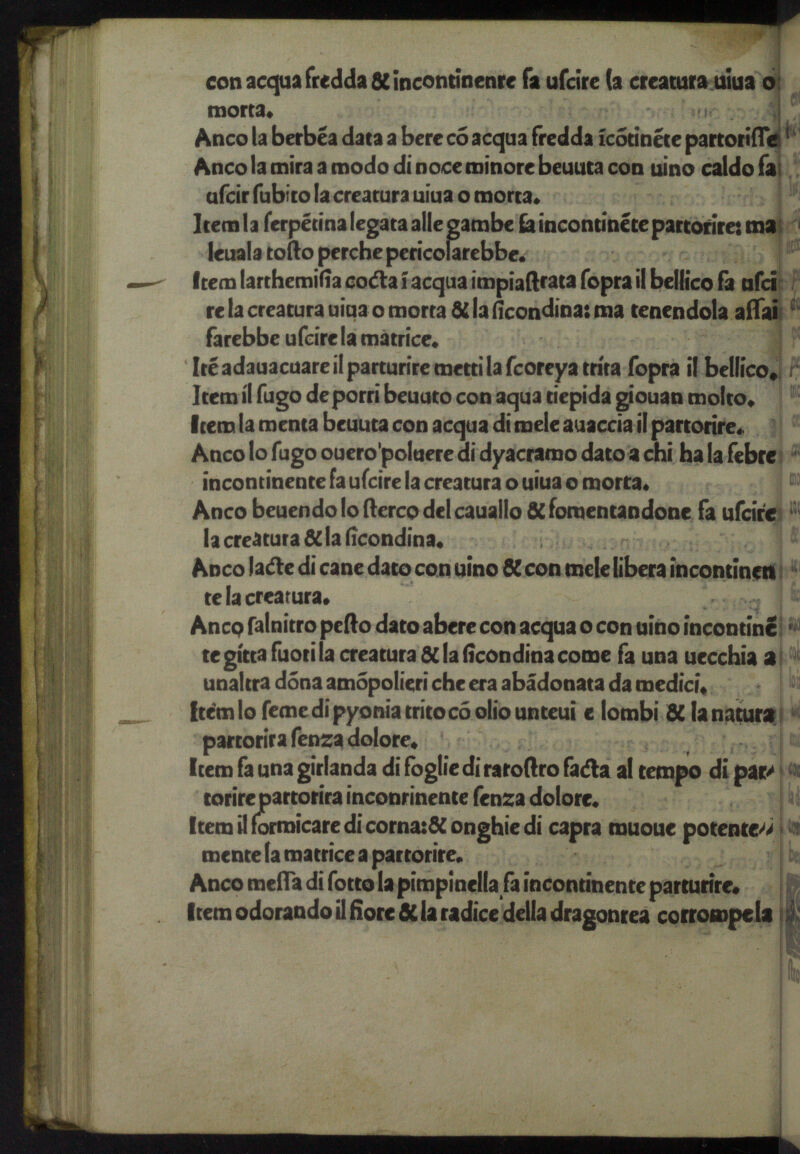 con acqua fredda & incontinente fa uſcire la creatura uiua o
morta.
Anco la berbéa data a bere có acqua fredda ícótinéte partoriſſe
Anco la mira a modo di noce minore beuuta con uino caldo fa
uſcir ſubito la creatura uiua o morta.
Item la ſerpétina legata alle gambe fa incontinéte partorire: ma
leuala toſto perche pericolarebbe.
Item larthemiſia cocta í acqua impiaſtrata ſopra il bellico fa uſci
re la creatura uiua o morta & la ſicondina: ma tenendola aſſai
farebbe uſcire la matrice.
Ité ad auacuare il parturire metti la ſcoreya trita ſopra il bellico.
Item il ſugo de porri beuuto con aqua tiepida giouan molto.
Item la menta beuuta con acqua di mele auaccia il partorire.
Anco lo ſugo ouero poluere di dyacramo dato a chi ha la febre
incontinente fa uſcire la creatura o uiua o morta.
Anco beuendo lo ſterco del cauallo & fomentandone fa uſcire
la creatura & la ſicondina.
Anco lacte di cane dato con uino & con mele libera incontinen
te la creatura.
Anco ſalnitro peſto dato abere con acqua o con uino incontiné
te gitta fuori la creatura & la ſicondina come fa una uecchia a
unaltra dóna amópolieri che era abádonata da medici.
Item lo ſeme di pyonia trito có olio unteui e lombi & la natura
partorira ſenza dolore.
Item fa una girlanda di foglie di raroſtro facta al tempo di par⸗
torire partorira inconrinente ſenza dolore.
Item il formicare di corna: & onghie di capra muoue potente⸗
mente la matrice a partorire.
Anco meſſa di ſotto la pimpinella fa incontinente parturire.
Item odorando il fiore & la radice della dragonrea corrompe la